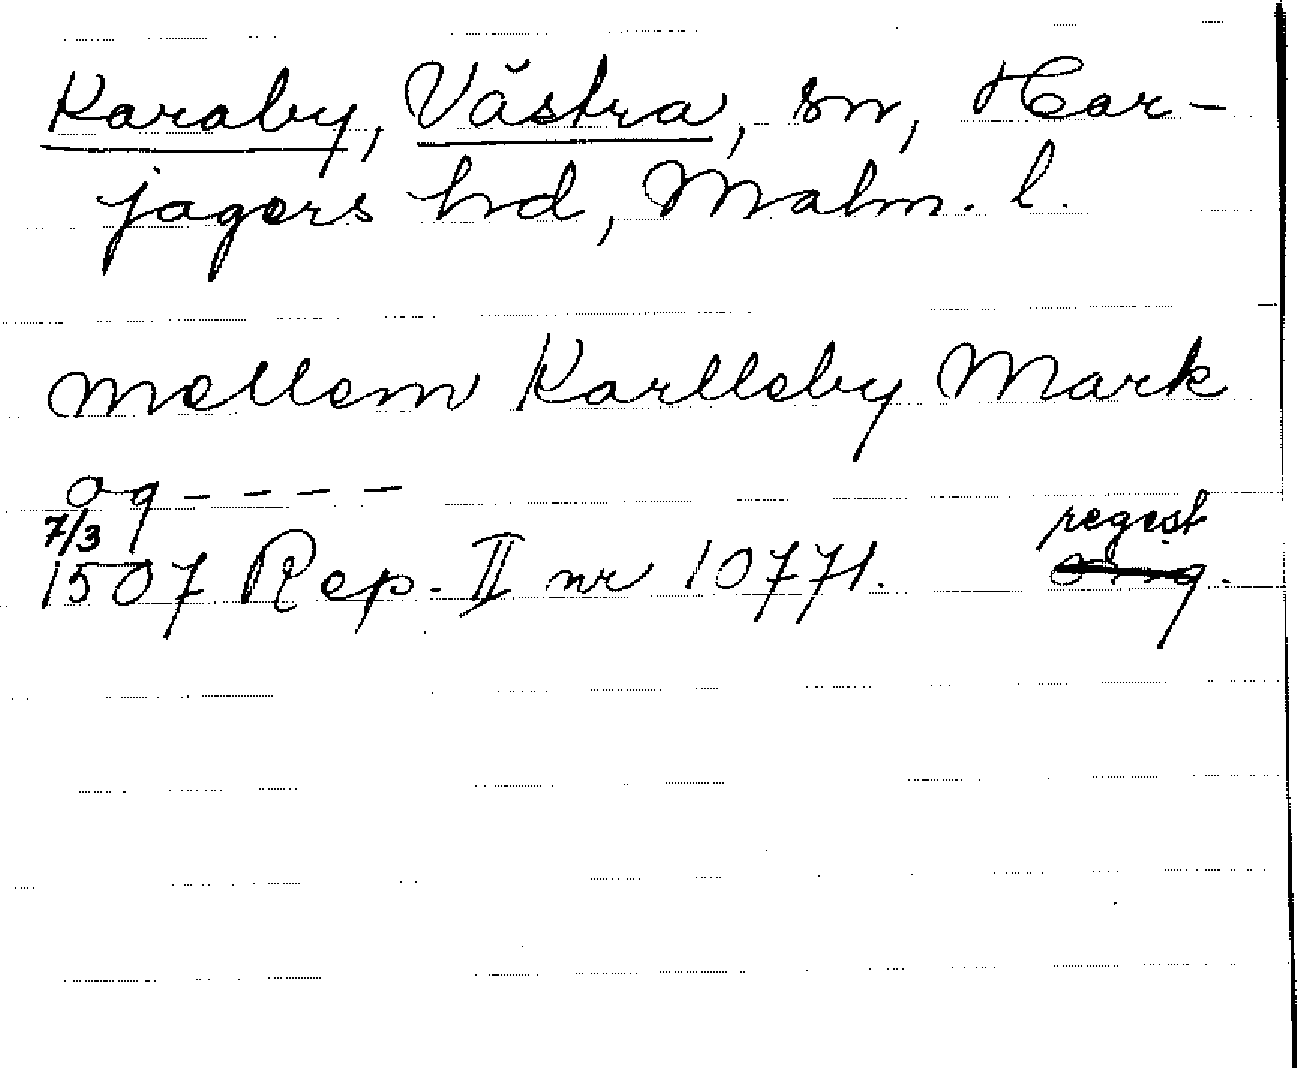 Karaby, Västra, sn, Har-
jagers hd, Malm. l.
mellem Karlleby Mark
og - - - -
7/3 regest
1507 Rep. II nr 10771. orig.